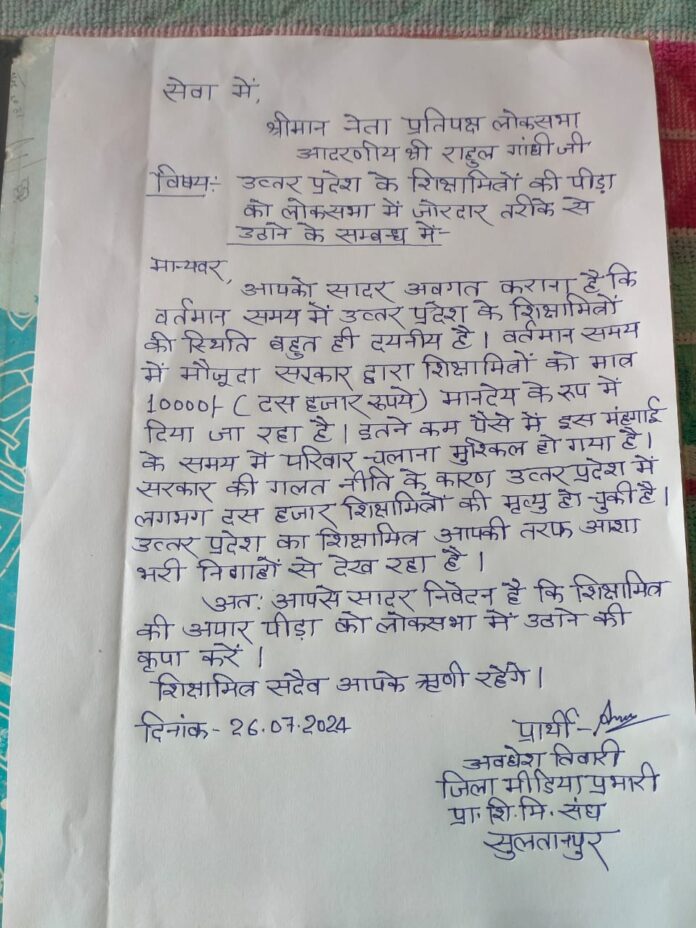 सेवा में,
श्रीमान नेता प्रतिपक्ष लोकसभा
आदरणीय श्री राहुल गांधी जी
विषय:- उत्तर प्रदेश के शिक्षामित्रों की पीड़ा
को लोकसभा में जोरदार तरीके से
उठाने के सम्बन्ध में-
मान्यवर,
आपको सादर अवगत कराना है कि
वर्तमान समय में उत्तर प्रदेश के शिक्षामित्रों
की स्थिति बहुत ही दयनीय है। वर्तमान समय
में मौजूदा सरकार द्वारा शिक्षामित्रों को मात्र
10000/- (दस हजार रुपये) मानदेय के रूप में
दिया जा रहा है। इतने कम पैसे में इस मंहगाई
के समय में परिवार चलाना मुश्किल हो गया है।
सरकार की गलत नीति के कारण उत्तर प्रदेश में
लगभग दस हजार शिक्षामित्रों की मृत्यु हो चुकी है।
उत्तर प्रदेश का शिक्षामित्र आपकी तरफ आशा
भरी निगाहों से देख रहा है।
अत: आपसे सादर निवेदन है कि शिक्षामित्र
की अपार पीड़ा को लोकसभा में उठाने की
कृपा करें।
शिक्षामित्र सदैव आपके ऋणी रहेंगे।
दिनांक - 26.07.2024 प्रार्थी-
अवधेश तिवारी
जिला मीडिया प्रभारी
प्रा. शि. मि. संघ
सुलतानपुर